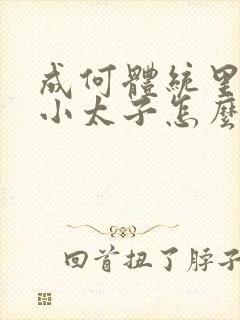 成何體統里
小太子怎麼
回首扭了脖子